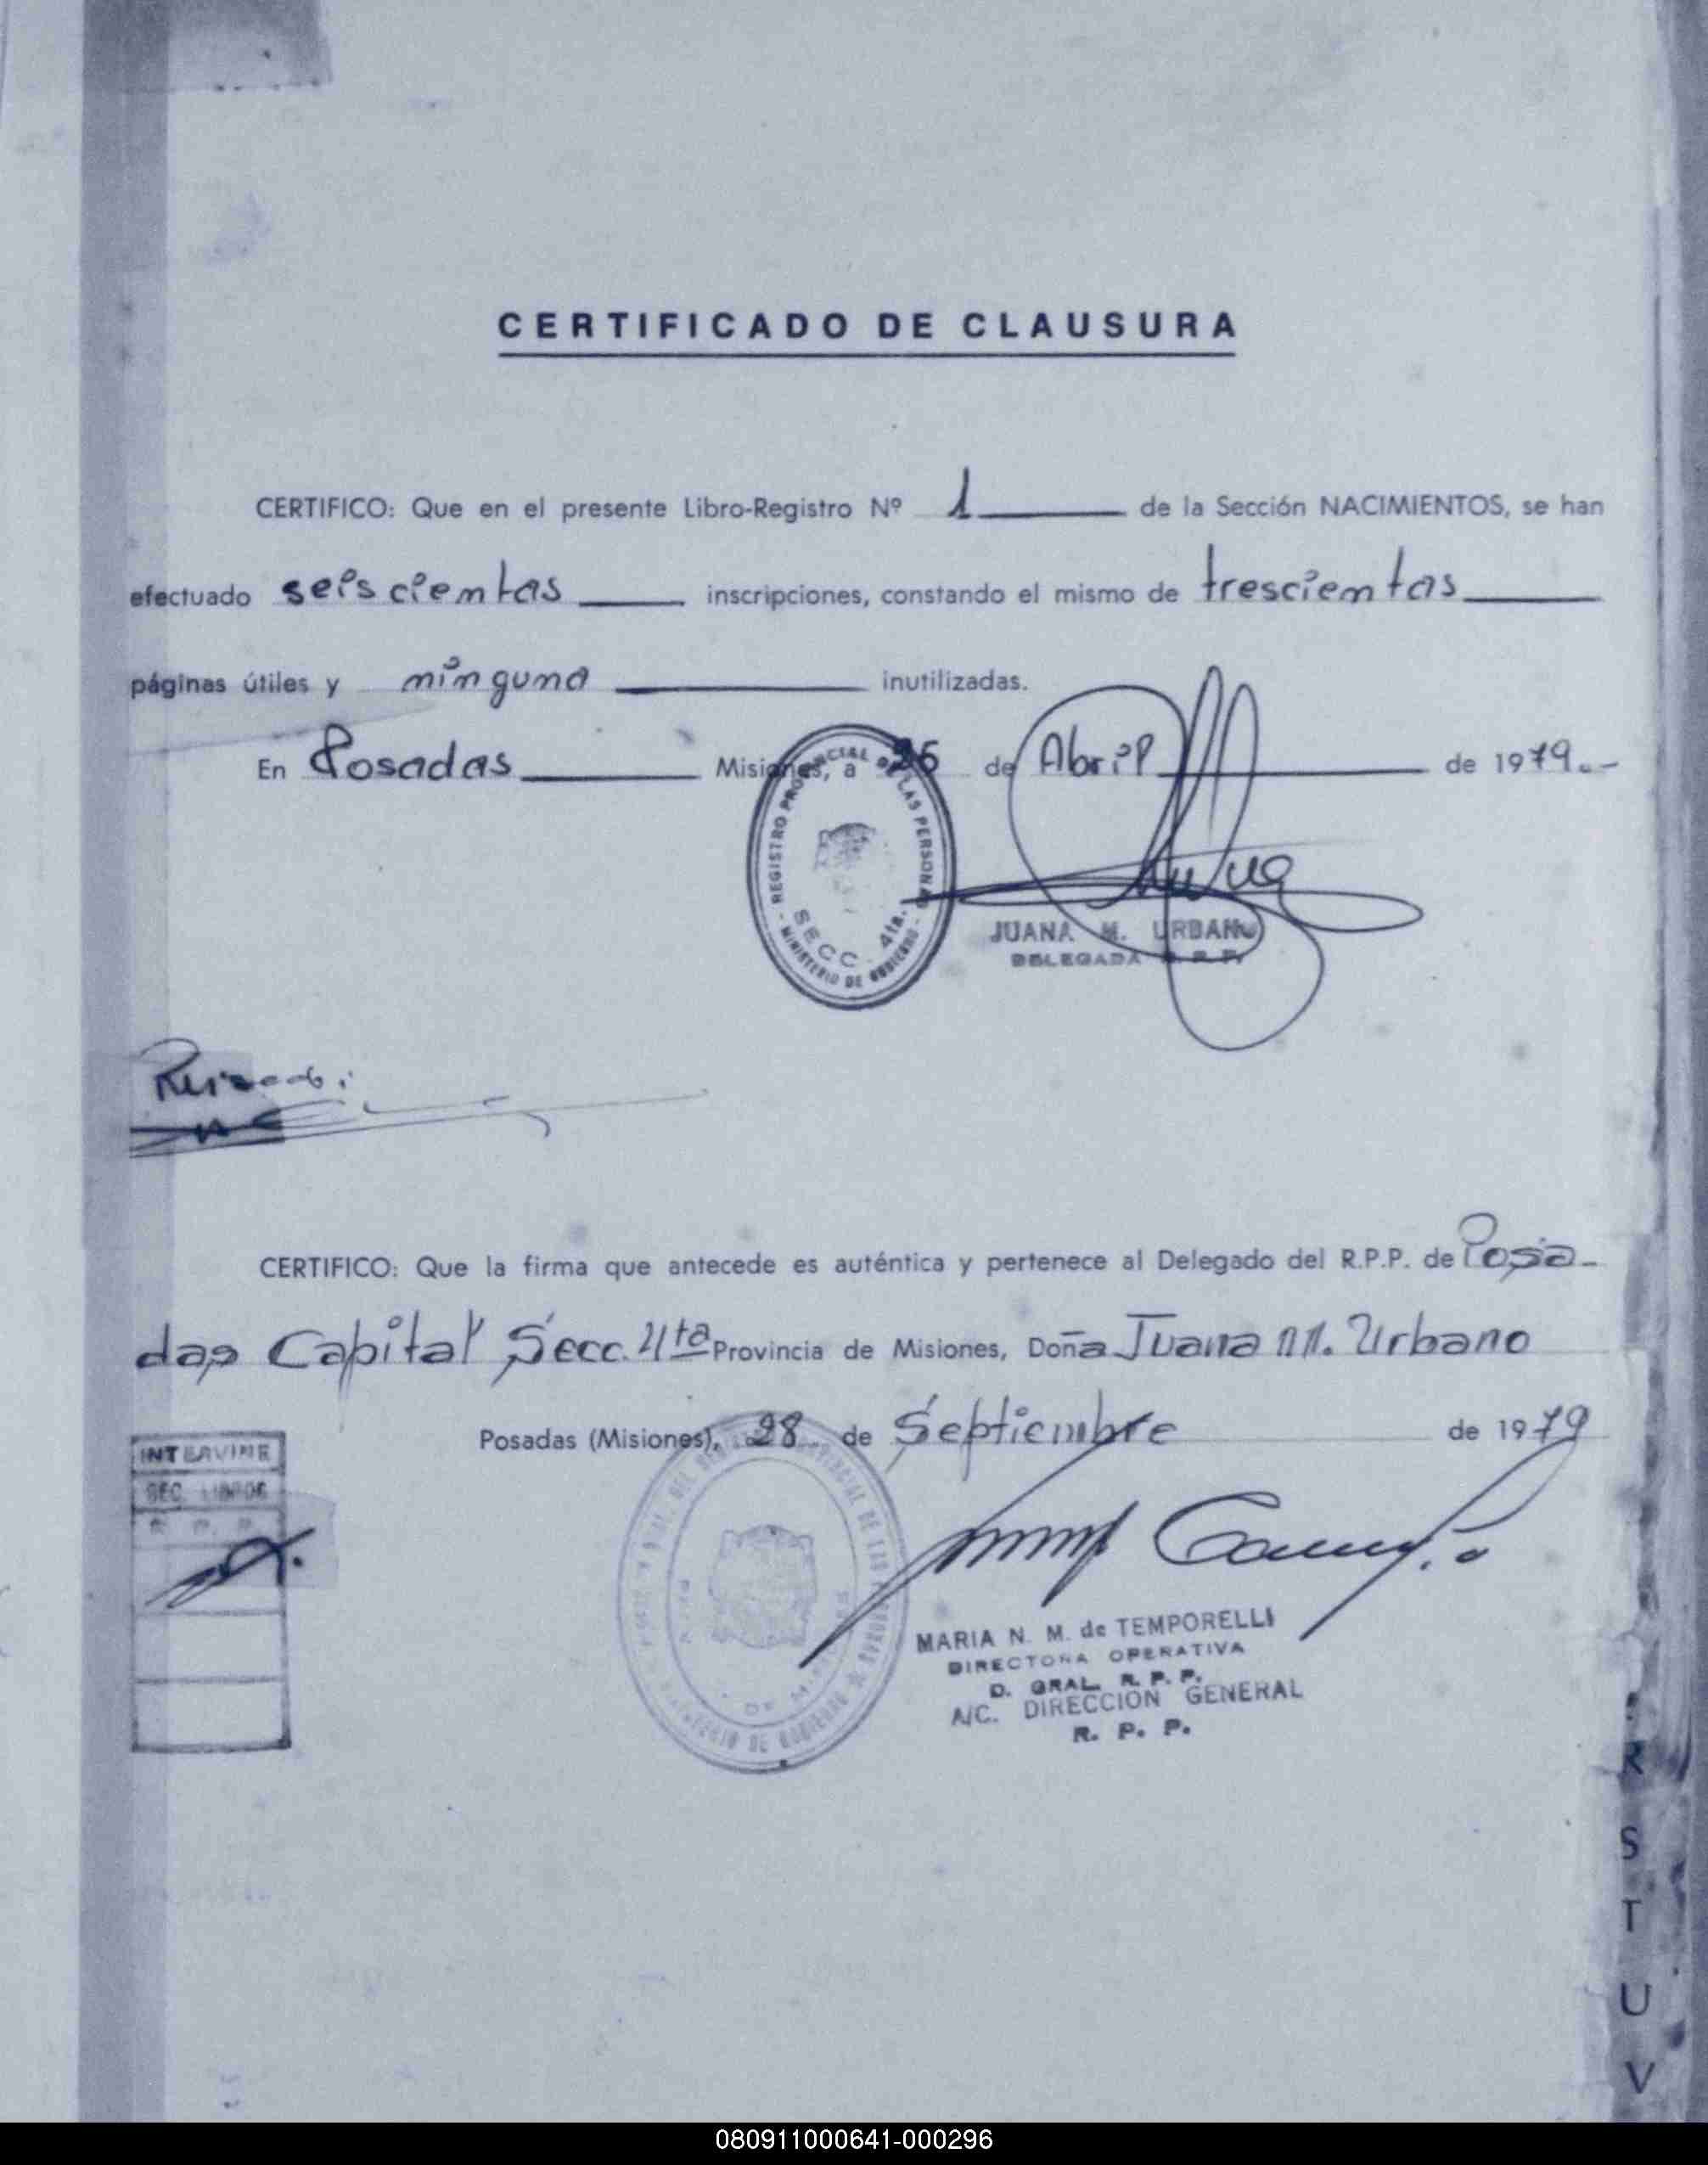 CERTIFICADO DE CLAUSURA
CERTIFICO: Que en el presente Libro-Registro Nº 1 de la Sección NACIMIENTOS, se han
efectuado seiscientas inscripciones, constando el mismo de trescientas
páginas útiles y ninguna inutilizadas.
En Posadas Misiones, a 26 de Abril de 1979.-
REGISTRO PROVINCIAL DE LAS PERSONAS
SECC. 4ta.
MINISTERIO DE GOBIERNO
JUANA M. URBANO
DELEGADA R. P. P.
CERTIFICO: Que la firma que antecede es auténtica y pertenece al Delegado del R.P.P. de Posa-
das Capital Secc. 4ta Provincia de Misiones, Doña Juana M. Urbano
Posadas (Misiones), 28 de Septiembre de 1979
INTERVINE
SEC. LIBROS
R. P. P.
MINISTERIO DE GOBIERNO
MARIA N. M. de TEMPORELLI
DIRECTORA OPERATIVA
D. GRAL. R. P. P.
A/C. DIRECCION GENERAL
R. P. P.
R
S
T
U
V
080911000641-000296